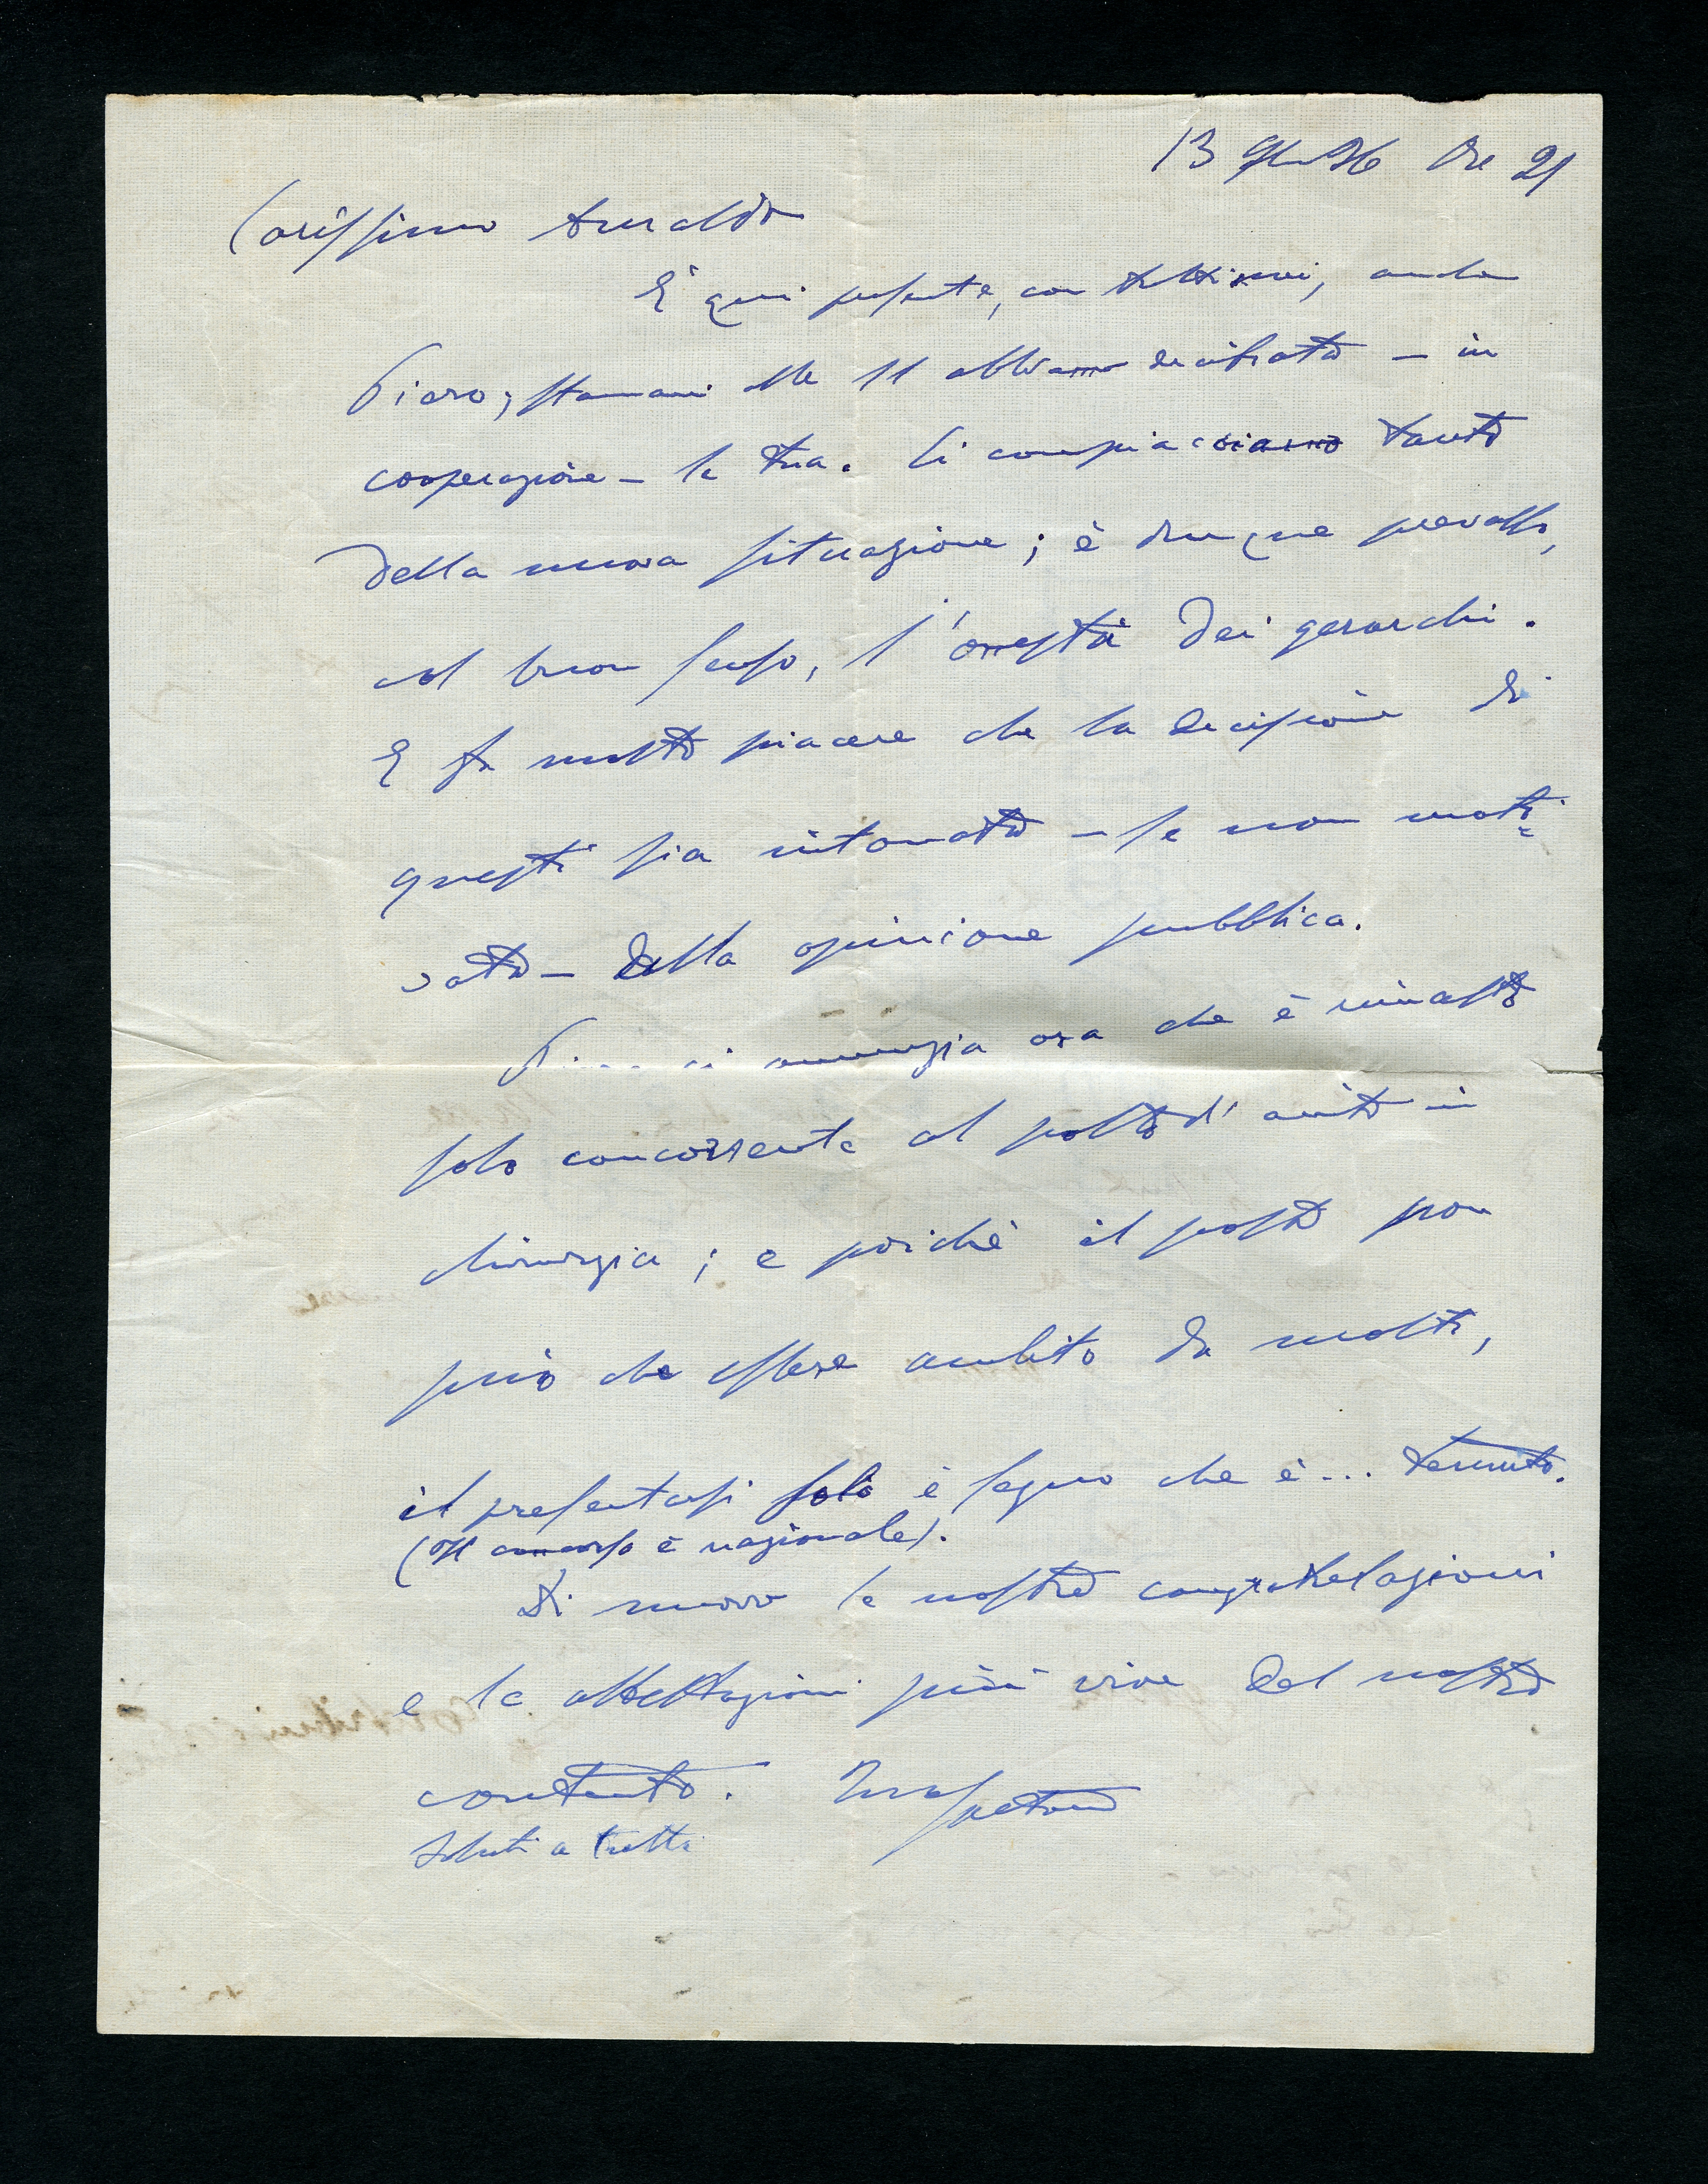 13 36 Ore 21
Carissimo Arnaldo
E' qui presente, con tutti noi, anche
Piero; stamani alle 11 abbiamo decifrato - in
cooperazione - la tua. Ci compiacciamo tanto
della nuova situazione; è dunque prevalsa,
col buon senso, l'onestà dei gerarchi.
E fa molto piacere che la decisione di
questi sia intonata - se non moti=
vata - dalla opinione pubblica.
Piero ci annunzia ora che è rimasto
solo concorrente al posto d'aiuto in
chirurgia; e poichè il posto non
può che essere ambito da molti,
il presentarsi solo è segno che è... temuto.
(Il concorso è nazionale).
Di nuovo le nostre congratulazioni
e le attestazioni più vive del nostro
contento. Tuo Gaetano
Saluti a tutti